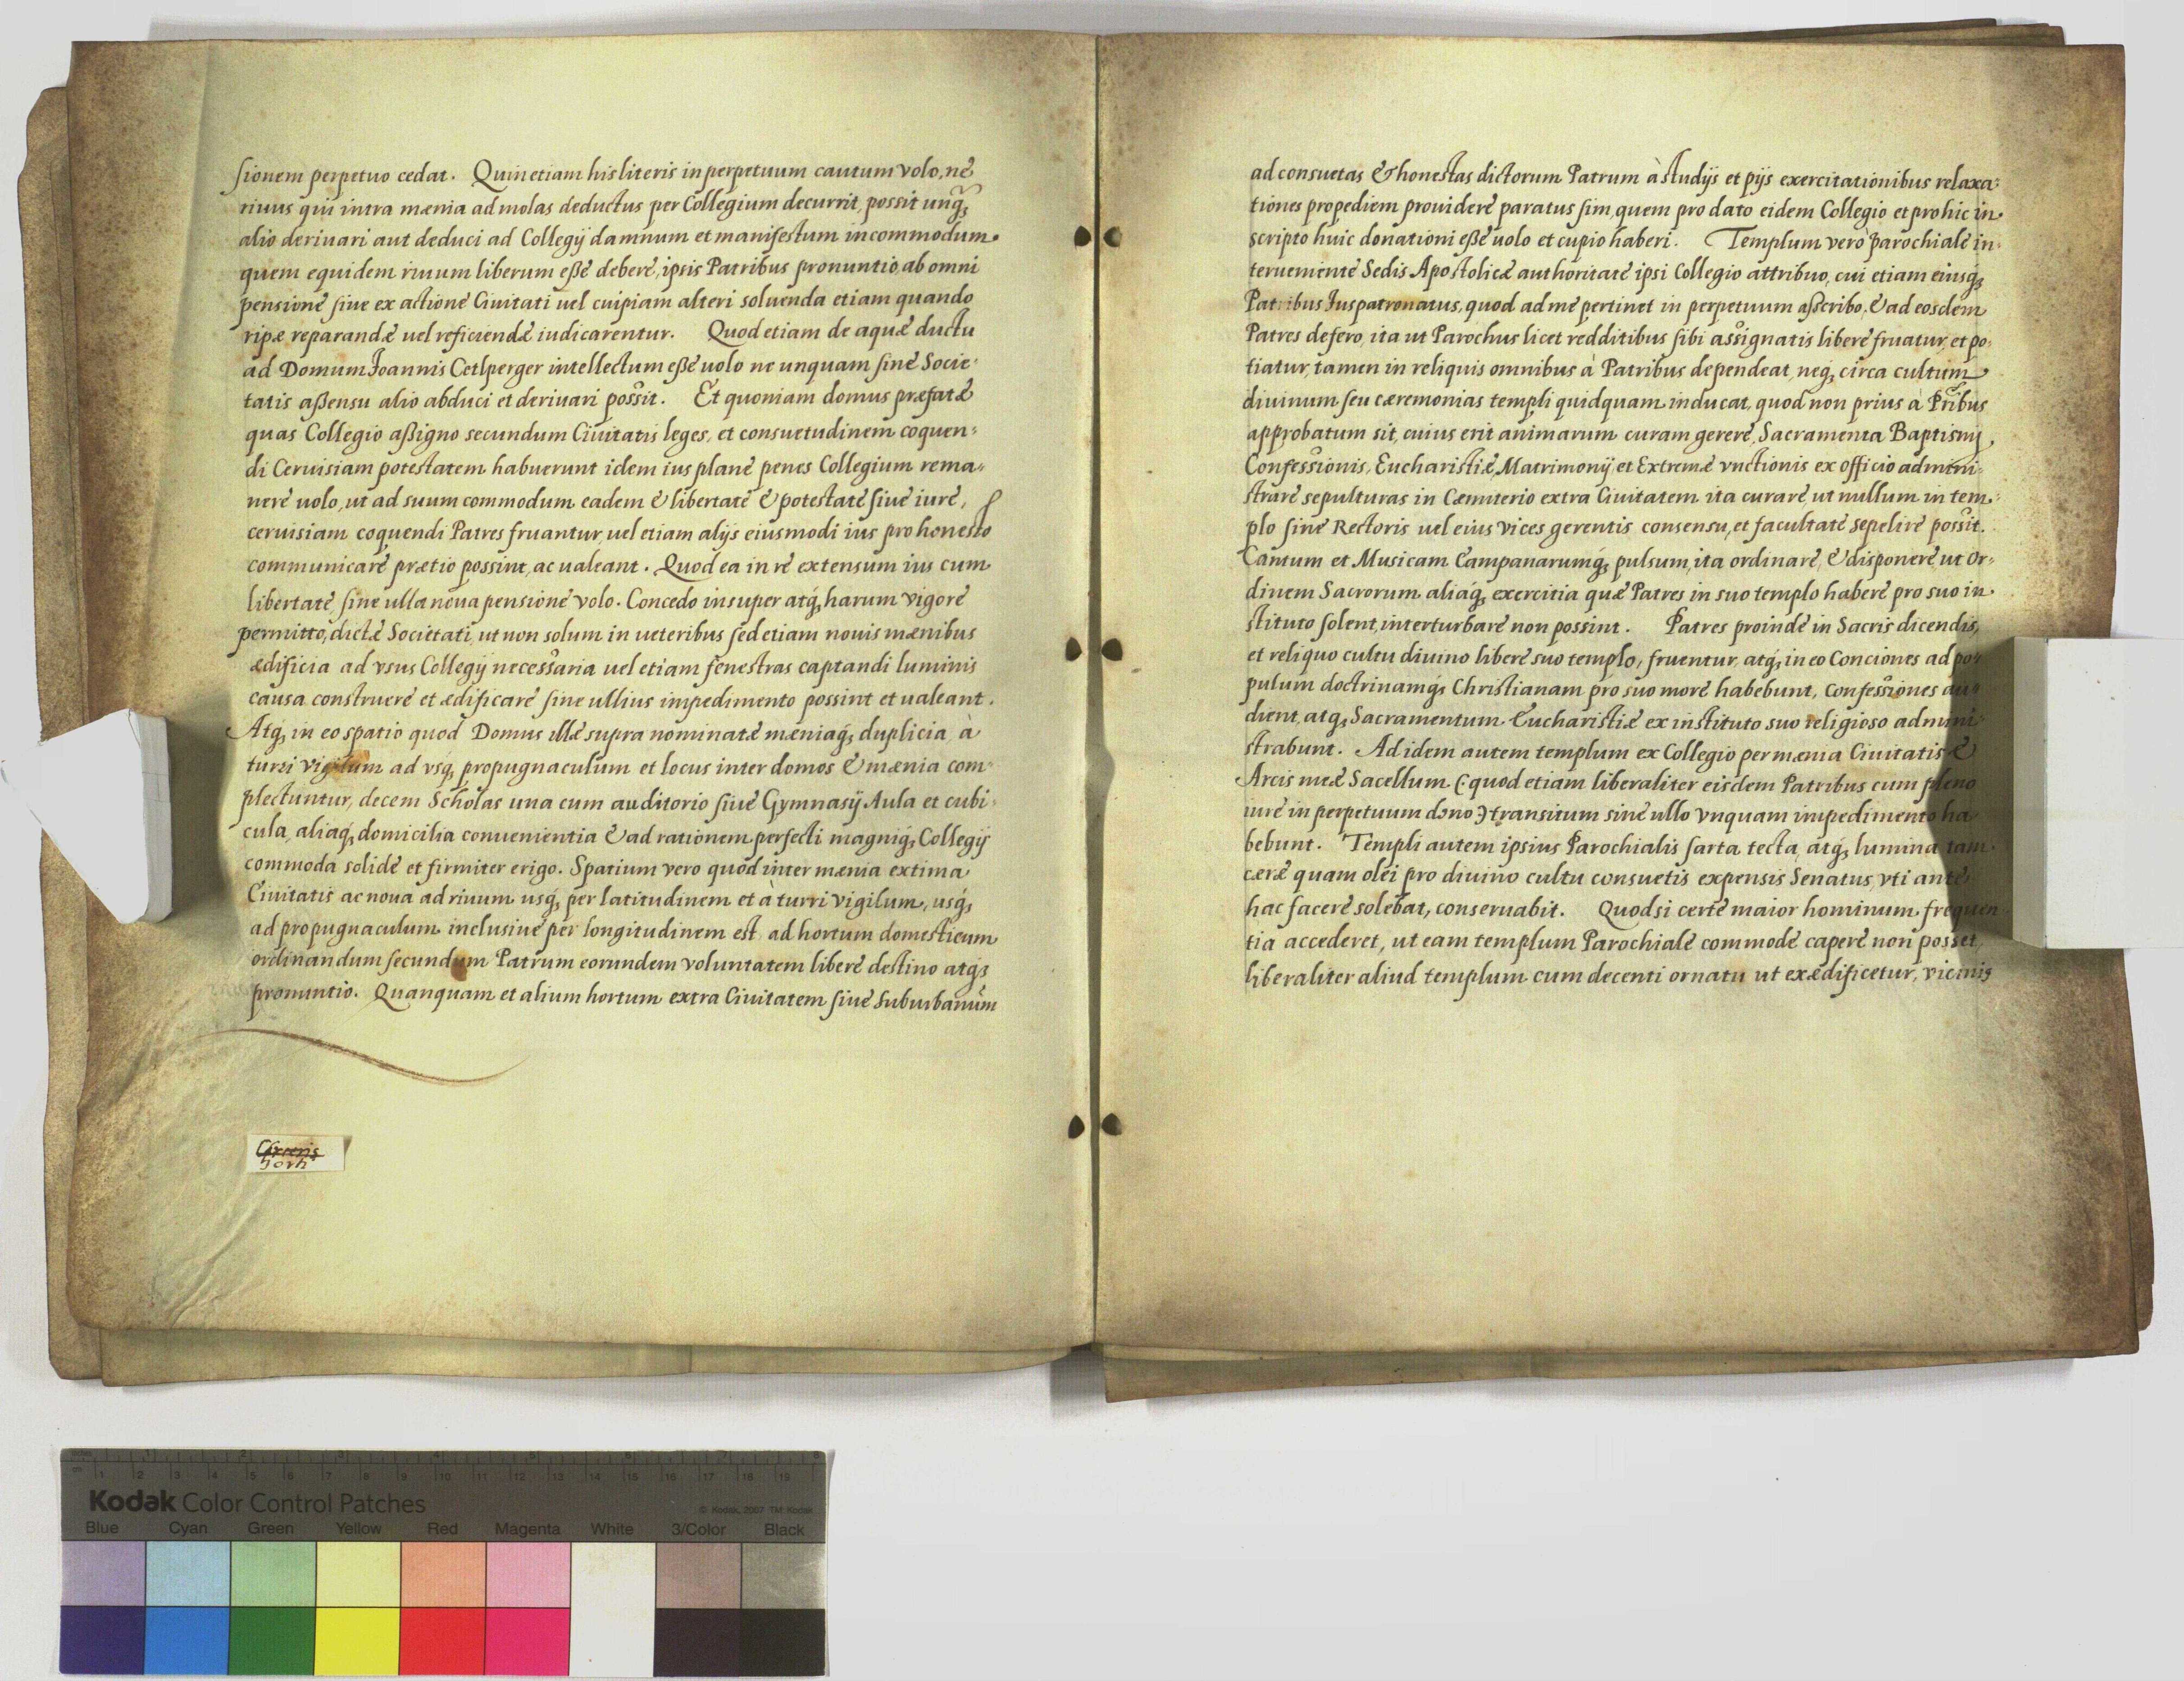 sionem perpetuo cedat. Quinetiam his literis in perpetuum cautum volo, nè
riuus qui intra mænia ad molas deductus per Collegium decurrit, possit unq̃
alio deriuari aut deduci ad Collegij damnum et manifestum incommodum
quem equidem riuum liberum esse debere, ipsis Patribus pronuntio, ab omni
pensione siue exactione Ciuitati uel cuipiam alteri soluenda etiam quando
ripæ reparandæ uel reficiendæ iudicarentur. Quod etiam de aquæ ductu
ad Domum Joannis Cetlperger intellectum esse uolo ne unquam sine Socie-
tatis assensu alio abduci et deriuari possit. Et quoniam domus præfatæ
quas Collegio assigno secundum Ciuitatis leges, et consuetudinem coquen-
di Ceruisiam potestatem habuerunt idem ius plane penes Collegium rema-
nere uolo, ut ad suum commodum eadem & libertate & potestate siue iure,
ceruisiam coquendi Patres fruantur, uel etiam alijs eiusmodi ius pro honesto
communicare prætio possint, ac ualeant. Quod ea in re extensum ius cum
libertate, sine ulla noua pensione volo. Concedo insuper atq́; harum vigore
permitto, dictæ Societati, ut non solum in ueteribus sed etiam nouis mænibus
ædificia ad vsus Collegij necessaria uel etiam fenestras captandi luminis
causa construere et ædificare sine ullius impedimento possint et ualeant.
Atq́; in eo spatio quod Domus illæ supra nominatæ mæniaq́; duplicia, à
turri vigilum ad vsq́; propugnaculum et locus inter domos & mænia com-
plectuntur, decem Scholas una cum auditorio siue Gymnasij Aula et cubi-
cula, aliaq́; domicilia conuenientia & ad rationem perfecti magniq́; Collegij
commoda solide et firmiter erigo. Spatium vero quod inter mænia extima
Ciuitatis ac noua ad riuum usq́; per latitudinem et à turri vigilum, usq́;
ad propugnaculum inclusiue per longitudinem est ad hortum domesticum
ordinandum secundum Patrum eorundem voluntatem libere destino atq́;
pronuntio. Quanquam et alium hortum extra Ciuitatem siue Suburbanum
horti
ad consuetas & honestas dictorum Patrum à studijs et pijs exercitationibus relaxa-
tiones propediem prouidere paratus sim, quem pro dato eidem Collegio et pro hic in-
scripto huic donationi esse uolo et cupio haberi. Templum verò parochiale in-
terueniente Sedis Apostolicæ authoritate ipsi Collegio attribuo, cui etiam eiusq́;
Patribus Juspatronatus, quod ad me pertinet in perpetuum asscribo, & ad eosdem
Patres defero, ita ut Parochus licet redditibus sibi assignatis libere fruatur, et po-
tiatur, tamen in reliquis omnibus à Patribus dependeat, neq́; circa cultum
diuinum seu cæremonias templi quidquam inducat, quod non prius à Pr̃ibus
approbatum sit, cuius erit animarum curam gerere, Sacramenta Baptismi,
Confessionis, Eucharistiæ, Matrimonij et Extremæ vnctionis ex officio admini-
strare sepulturas in Cæmiterio extra Ciuitatem ita curare, ut nullum in tem-
plo sine Rectoris uel eius vices gerentis consensu, et facultate sepelire possit.
Cantum et Musicam Campanarumq́; pulsum, ita ordinare, & disponere, ut or-
dinem Sacrorum aliaq́; exercitia quæ Patres in suo templo habere pro suo in-
stituto solent, interturbare non possint. Patres proinde in Sacris dicendis,
et reliquo cultu diuino libere suo templo, fruentur, atq́; in eo Conciones ad po-
pulum doctrinamq́; Christianam pro suo more habebunt, Confessiones au-
dient, atq́; Sacramentum Eucharistiæ ex instituto suo religioso admini-
strabunt. Ad idem autem templum ex Collegio per mænia Ciuitatis &
Arcis meæ Sacellum (: quod etiam liberaliter eisdem Patribus cum pleno
iure in perpetuum dono :) transitum sine ullo vnquam impedimento ha-
bebunt. Templi autem ipsius Parochialis sarta tecta, atq́; lumina tam
cæræ quam olei pro diuino cultu consuetis expensis Senatus, vti ante-
hac facere solebat, conseruabit. Quodsi certe maior hominum frequen-
tia accederet, ut eam templum Parochiale commode capere non posset,
liberaliter aliud templum cum decenti ornatu ut exædificetur, vicinis
Kodak Color Control Patches
© Kodak, 2007 TM: Kodak
Blue Cyan Green Yellow Red Magenta White 3/Color Black